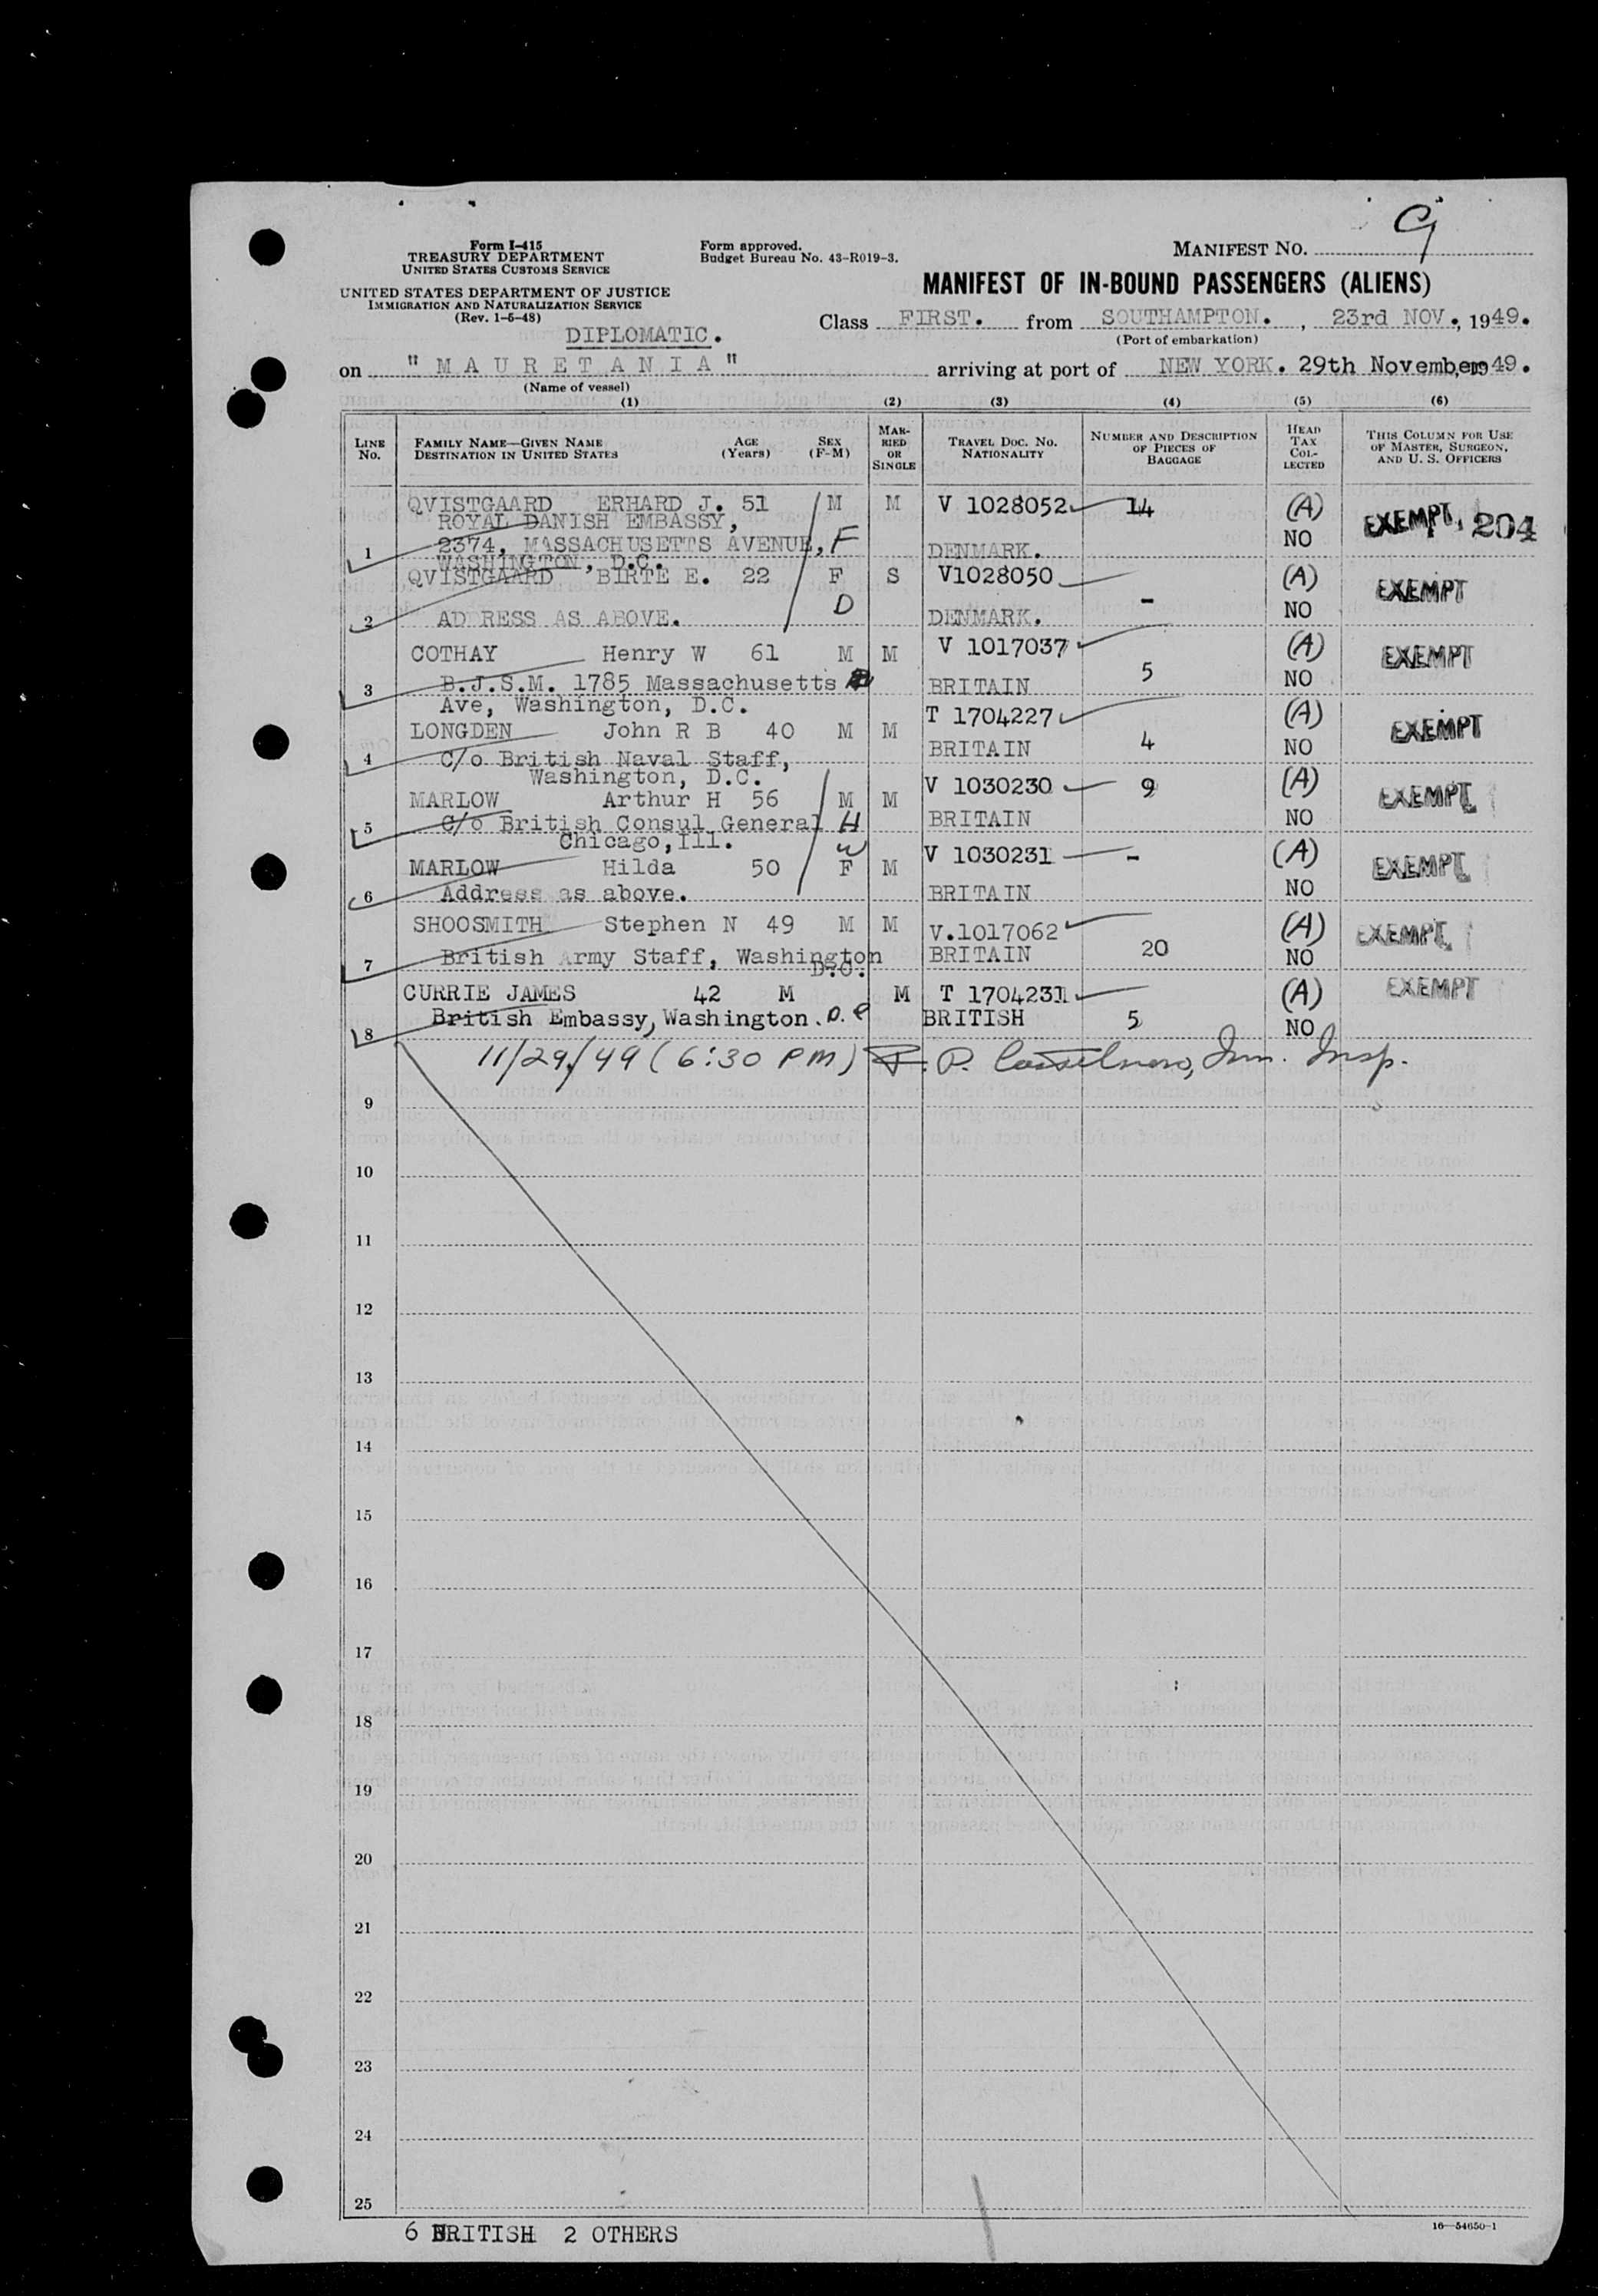 9
Form I-415
TREASURY DEPARTMENT
UNITED STATES CUSTOMS SERVICE
Form approved.
Budget Bureau No. 43-R019-3.
MANIFEST NO.
UNITED STATES DEPARTMENT OF JUSTICE
IMMIGRATION AND NATURALIZATION SERVICE
(Rev. 1-6-48)
MANIFEST OF IN-BOUND PASSENGERS (ALIENS)
DIPLOMATIC.
Class FIRST. from SOUTHAMPTON. , 23rd NOV., 1949.
(Port of embarkation)
on "MAURETANIA" arriving at port of NEW YORK. 29th November 49.
(Name of vessel)
(1) (2) (3) (4) (5) (6)
LINE No. FAMILY NAME—GIVEN NAME DESTINATION IN UNITED STATES AGE (Years) SEX (F-M) MARRIED OR SINGLE TRAVEL DOC. No. NATIONALITY NUMBER AND DESCRIPTION OF PIECES OF BAGGAGE HEAD TAX COLLECTED THIS COLUMN FOR USE OF MASTER, SURGEON, AND U. S. OFFICERS
QVISTGAARD ERHARD J. 51 M M V 1028052 14 (A) EXEMPT. 204
ROYAL DANISH EMBASSY,
1 2374, MASSACHUSETTS AVENUE, F DENMARK. NO
WASHINGTON, D.C.
QVISTGAARD BIRTE E. 22 F S V1028050 - (A) EXEMPT
2 ADDRESS AS ABOVE. D DENMARK. NO
COTHAY Henry W 61 M M V 1017037 5 (A) EXEMPT
3 B.J.S.M. 1785 Massachusetts BRITAIN NO
Ave, Washington, D.C.
LONGDEN John R B 40 M M T 1704227 4 (A) EXEMPT
4 C/o British Naval Staff, BRITAIN NO
Washington, D.C.
MARLOW Arthur H 56 M M V 1030230 9 (A) EXEMPT
5 C/o British Consul General H BRITAIN NO
Chicago, Ill. W
MARLOW Hilda 50 F M V 1030231 - (A) EXEMPT
6 Address as above. BRITAIN NO
SHOOSMITH Stephen N 49 M M V.1017062 20 (A) EXEMPT
7 British Army Staff, Washington BRITAIN NO
D.C.
CURRIE JAMES 42 M M T 1704231 5 (A) EXEMPT
8 British Embassy, Washington. D.C BRITISH NO
11/29/49 (6:30 PM) P. Imm. Insp.
9
10
11
12
13
14
15
16
17
18
19
20
21
22
23
24
25
6 BRITISH 2 OTHERS
16—54650-1